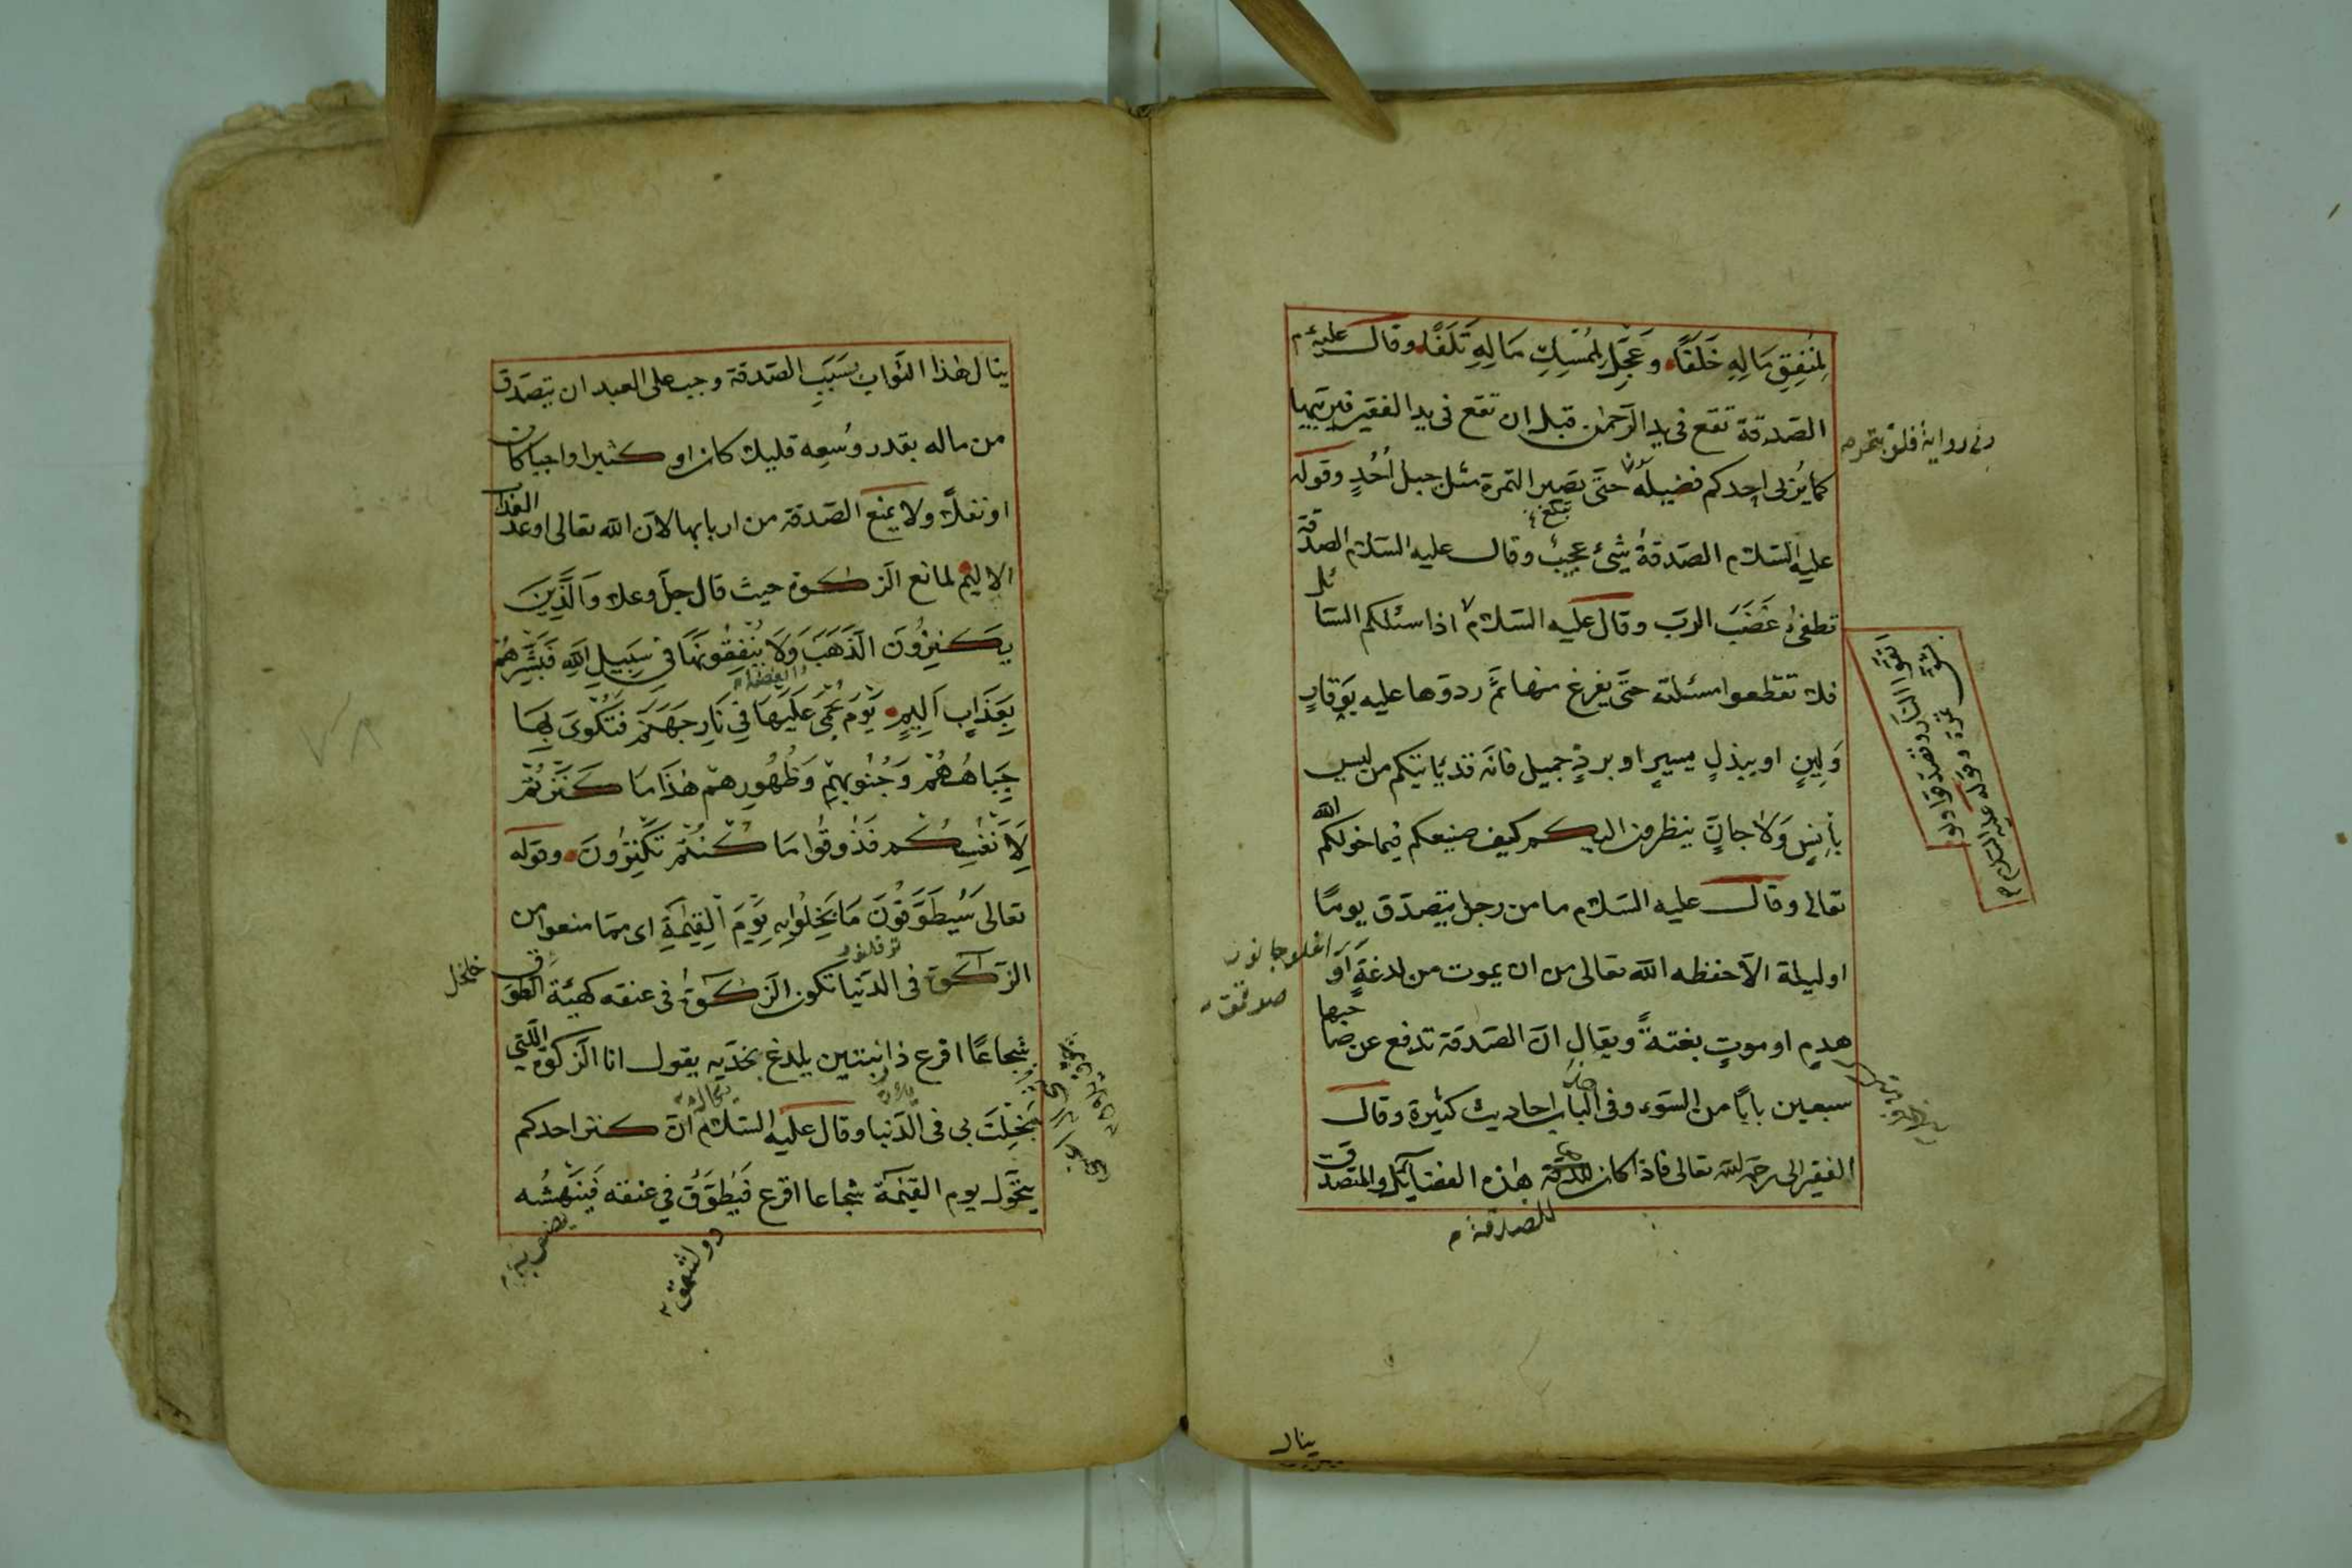 لِمُنْفِقِ مَالِهِ خَلَفًا وَعَجِّلْ لِمُمْسِكِ مَالِهِ تَلَفًا وقال عليه م
الصّدقة تقع فى يد الرّحمٰن قبل ان تقع فى يد الفقير فيربّيها
كما يُربى احدكم فصيله حتّى تصير التمرة مثل جبل اُحُدٍ وقوله
عليه السّلام الصّدقةُ شئ عجيبٌ وقال عليه السّلام الصدقة
تطفئ غَضَبَ الرب وقال عليه السّلام اذا سئلكم السّائل
فلا تقطعوا مسئلته حتّى يفرغ منها ثمّ ردوّها عليه بِوَقارٍ
وَلِينٍ او ببذلٍ يسيرٍ او بردٍّ جميل فانّه قد يأتيكم من ليس
بأنِسٍ وَلا جانٍّ ينظرون اليكم كيف صنيعكم فيما خولكم الله
تعالى وقال عليه السّلام ما من رجل يتصدّق يومًا
او ليلة الاّ حفظه الله تعالى من ان يموت من لدغةٍ اَوْ
هدمٍ او موتٍ بغتةً ويقال انّ الصّدقة تدفع عن صاحبها
سبعين بابًا من السّوء وفى الباب احاديث كثيرة وقال
الفقير الى رحمة الله تعالى فاذا كان للصدقة هٰذه الفضائل والمتصدّق
وفى رواية فلوّ بتمره
اتّقوا النّار وتصدّقوا ولو
بشق تمرة وقوله عليه السّلام م
للصدقة م
ينال
ينال هٰذا الثّواب بسَبَبِ الصّدقة وجب على العبد ان يتصَدّق
من ماله بقدر وُسْعِه قليلا كان او كثيرا واجبا كان
او نفلاً ولا يمنع الصّدقة من اربابها لانّ الله تعالى اوعد العذاب
الاليم لمانع الزكوة حيث قال جلّ وعلا وَالَّذِينَ
يَكْنِزُونَ الذَّهَبَ وَلَا يُنْفِقُونَهَا فِى سَبِيلِ اللهِ فَبَشِّرْهُمْ
والفضة
بِعَذَابٍ اَلِيمٍ يَوْمَ يُحْمَى عَلَيْهَا فِى نَارِ جَهَنَّمَ فَتُكْوَى بِهَا
جِبَاهُهُمْ وَجُنُوبُهُمْ وَظُهُورُهُمْ هٰذَا مَا كَنَزْتُمْ
لِاَنْفُسِكُمْ فَذُوقُوا مَا كُنْتُمْ تَكْنِزُونَ وقوله
تعالى سَيُطَوَّقُونَ مَا بَخِلُوا بِهِ يَوْمَ الْقِيٰمَةِ اى ممّا منعوا من
الزكوة فى الدّنيا تكون الزكوة فى عنقه كهيئة الطوق
شجاعًا اقرع ذا زبيبتين يلدغ بخدّيه يقول انا الزكوة الّتى
بَخِلْتَ بى فى الدّنيا وقال عليه السّلام انّ كنز احدكم
يتحوّل يوم القيٰمة شجاعا اقرع فَيُطَوَّقُ فى عنقه فَيَنْهَشُه
٧٨